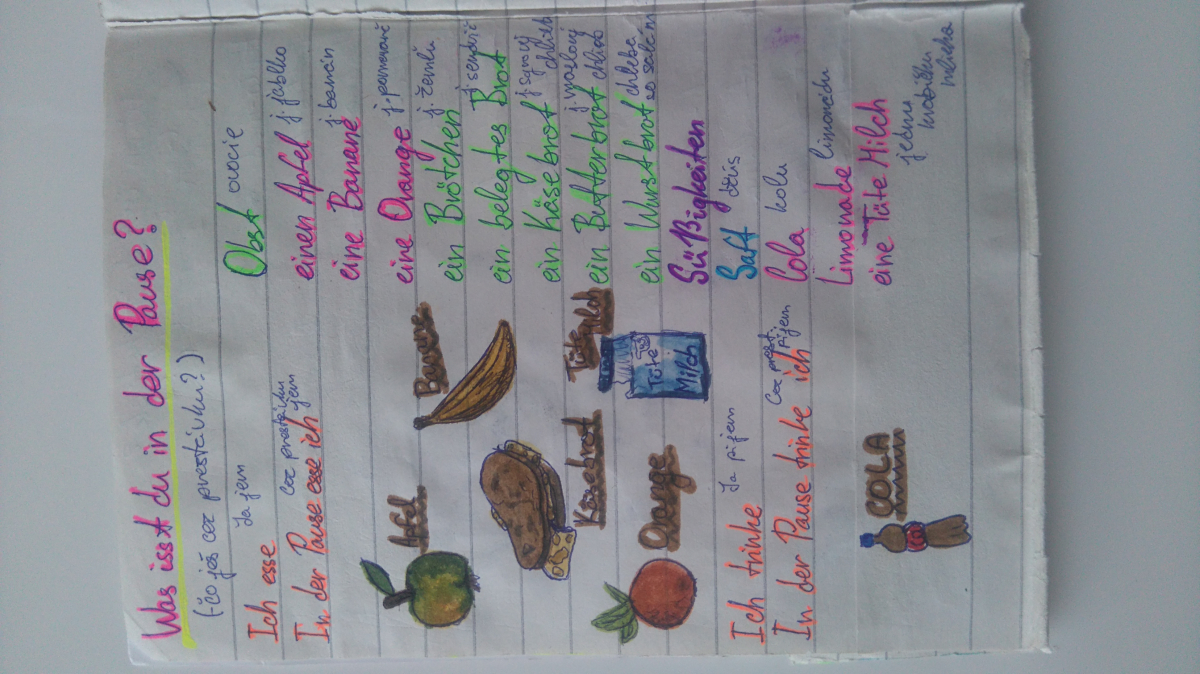 Was isst du in der Pause?
(-čo ješ cez prestávku?)
Ich esse
Ja jem
In der Pause esse ich
Cez prestávku jem
Apfel
Banane
Käsebrot
Tüte Milch
Tüte
Milch
Orange
Ich trinke
Ja pijem
In der Pause trinke ich
Cez prest. pijem
COLA
Obst ovocie
einen Apfel j. jablko
eine Banane j. banán
eine Orange j. pomaranč
ein Brötchen j. žemľu
ein belegtes Brot j. sendvič
ein Käsebrot j. syrový chlieb
ein Butterbrot j. maslový chlieb
ein Wurstbrot chleba so salámou
Süßigkeiten
Saft džús
Cola kolu
Limonade limonádu
eine Tüte Milch
jednu krabičku mlieka